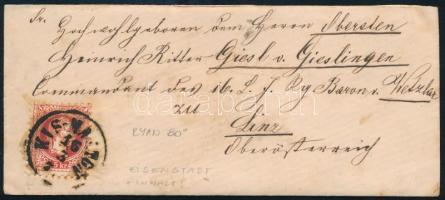 Sr. Hochwohlgeboren dem Herrn Obersten
Heinrich Ritter Giesl v. Gieslingen
Commandant des 16. L. J. Rg Baron v. Wetzlar
zu
Linz
Oberösterreich
KIS-MARTON
RYAN 80"
EISENSTADT
darabanth